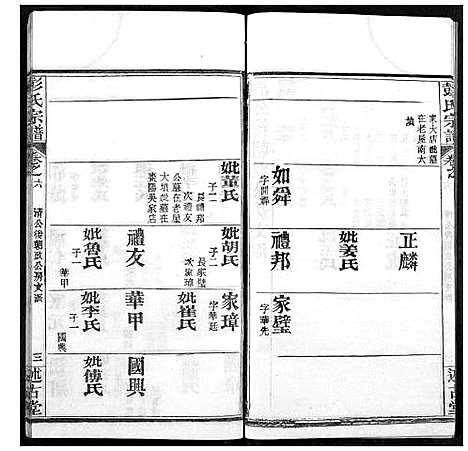 彭氏宗譜
卷之
述古堂
家大店䶮墓
在老屋南大
墳
正麟
妣姜氏
如舜
字開疇
禮邦
家璧
字華先
妣董氏
子二
長禮邦
次禮友
公墓在老屋
大墳妣墓在
棗陽吳家店
妣胡氏
子二
長家璧
次家璋
家璋
字華廷
妣崔氏
禮友
妣魯氏
子一
華甲
華甲
妣李氏
子一
國興
國興
妣傅氏
彭氏宗譜
卷之六
清公後朝政公房文派
三
述古堂